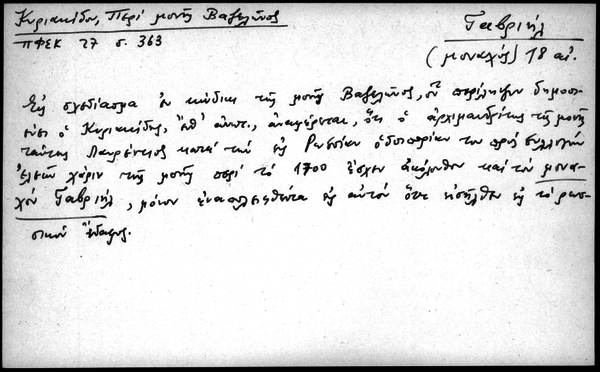 Κυριακίδου, Περί μονής Βαζελῶνος
ΠΦΕΚ 27 σ. 363
Γαβριήλ
(μοναχός) 18 αἰ.
Εἰς σχεδίασμα ἐν κώδικι τῆς μονῆς Βαζελῶνος, οὗ περίληψιν δημοσ-
ιεύει ὁ Κυριακίδης, ἔνθ' ἀνωτ., ἀναφέρεται, ὅτι ὁ ἀρχιμανδρίτης τῆς μονῆς
ταύτης Λαυρέντιος κατά τήν εἰς Ρωσσίαν ὁδοιπορίαν του πρός συλλογήν
ἐλεῶν χάριν τῆς μονῆς περί τό 1700 ἔσχεν ἀκόλουθον καί τόν μονα-
χόν Γαβριήλ, μόνον ἐναπολειφθέντα εἰς αὐτόν ὅτε εἰσῆλθεν εἰς τό ρωσ-
σικόν ἔδαφος.